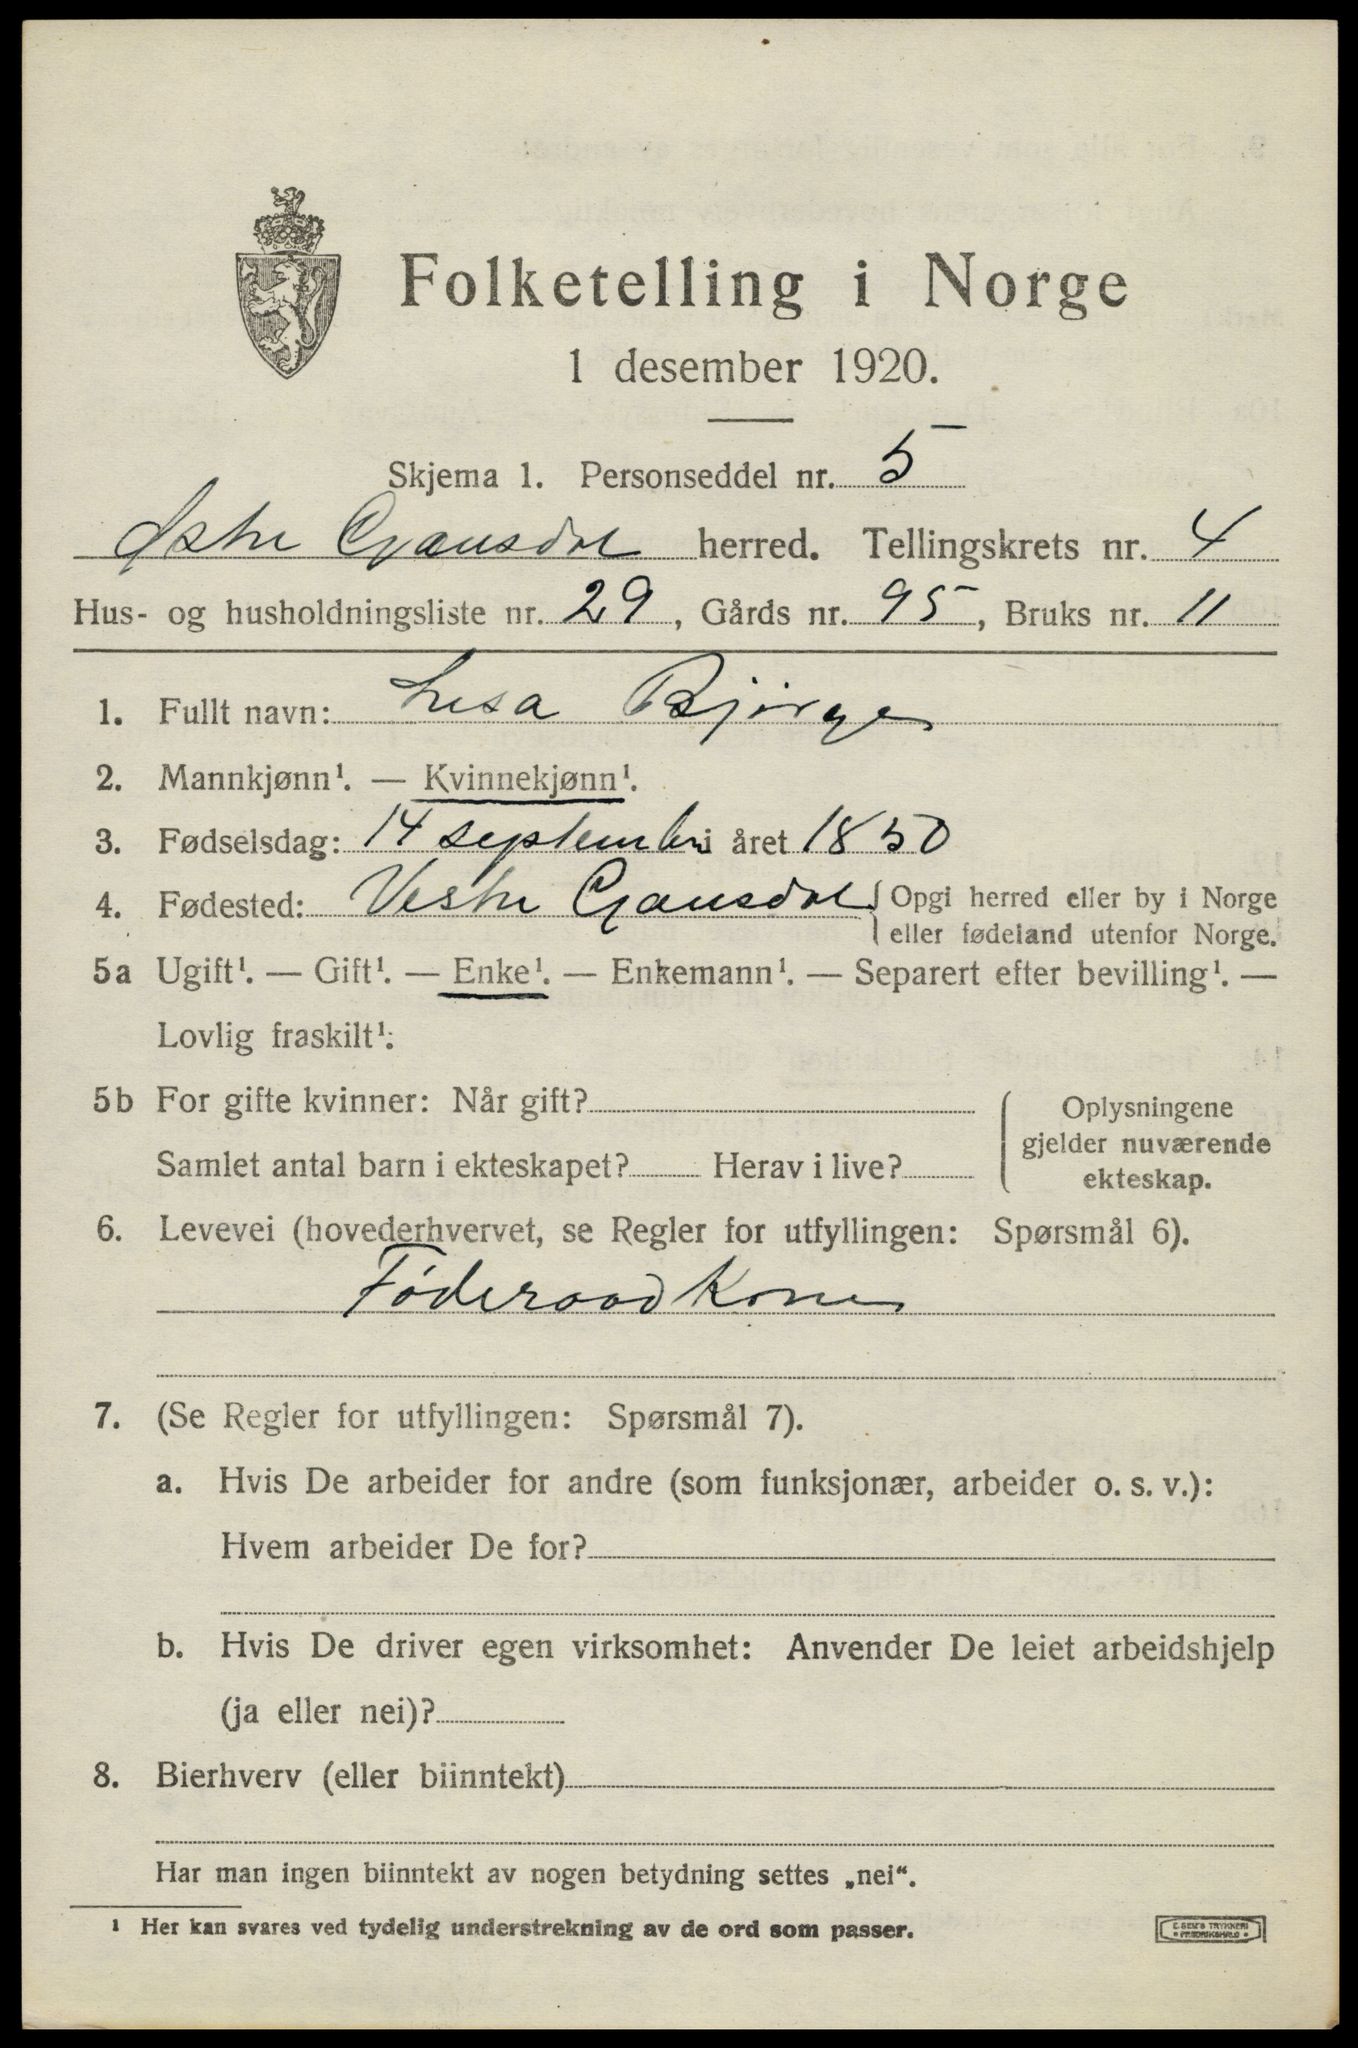 Folketelling i Norge
1 desember 1920.
Skjema 1. Personseddel nr. 5
Østre Gausdal herred. Tellingskrets nr. 4
Hus- og husholdningsliste nr. 29, Gårds nr. 95, Bruks nr. 11
1. Fullt navn: Lisa Bjørge
2. Mannkjønn¹. — Kvinnekjønn¹.
3. Fødselsdag: 14 september i året 1850
4. Fødested: Vestre Gausdal { Opgi herred eller by i Norge
eller fødeland utenfor Norge.
5a Ugift¹. — Gift¹. — Enke¹. — Enkemann¹. — Separert efter bevilling¹. —
Lovlig fraskilt¹:
5b For gifte kvinner: Når gift?
Samlet antal barn i ekteskapet? Herav i live?
Oplysningene
gjelder nuværende
ekteskap.
6. Levevei (hovederhvervet, se Regler for utfyllingen: Spørsmål 6).
Føderaad Kone
7. (Se Regler for utfyllingen: Spørsmål 7).
a. Hvis De arbeider for andre (som funksjonær, arbeider o. s. v.):
Hvem arbeider De for?
b. Hvis De driver egen virksomhet: Anvender De leiet arbeidshjelp
(ja eller nei)?
8. Bierhverv (eller biinntekt)
Har man ingen biinntekt av nogen betydning settes „nei“.
¹ Her kan svares ved tydelig understrekning av de ord som passer.
E. SEM'S TRYKKERI
FREDRIKSHALD